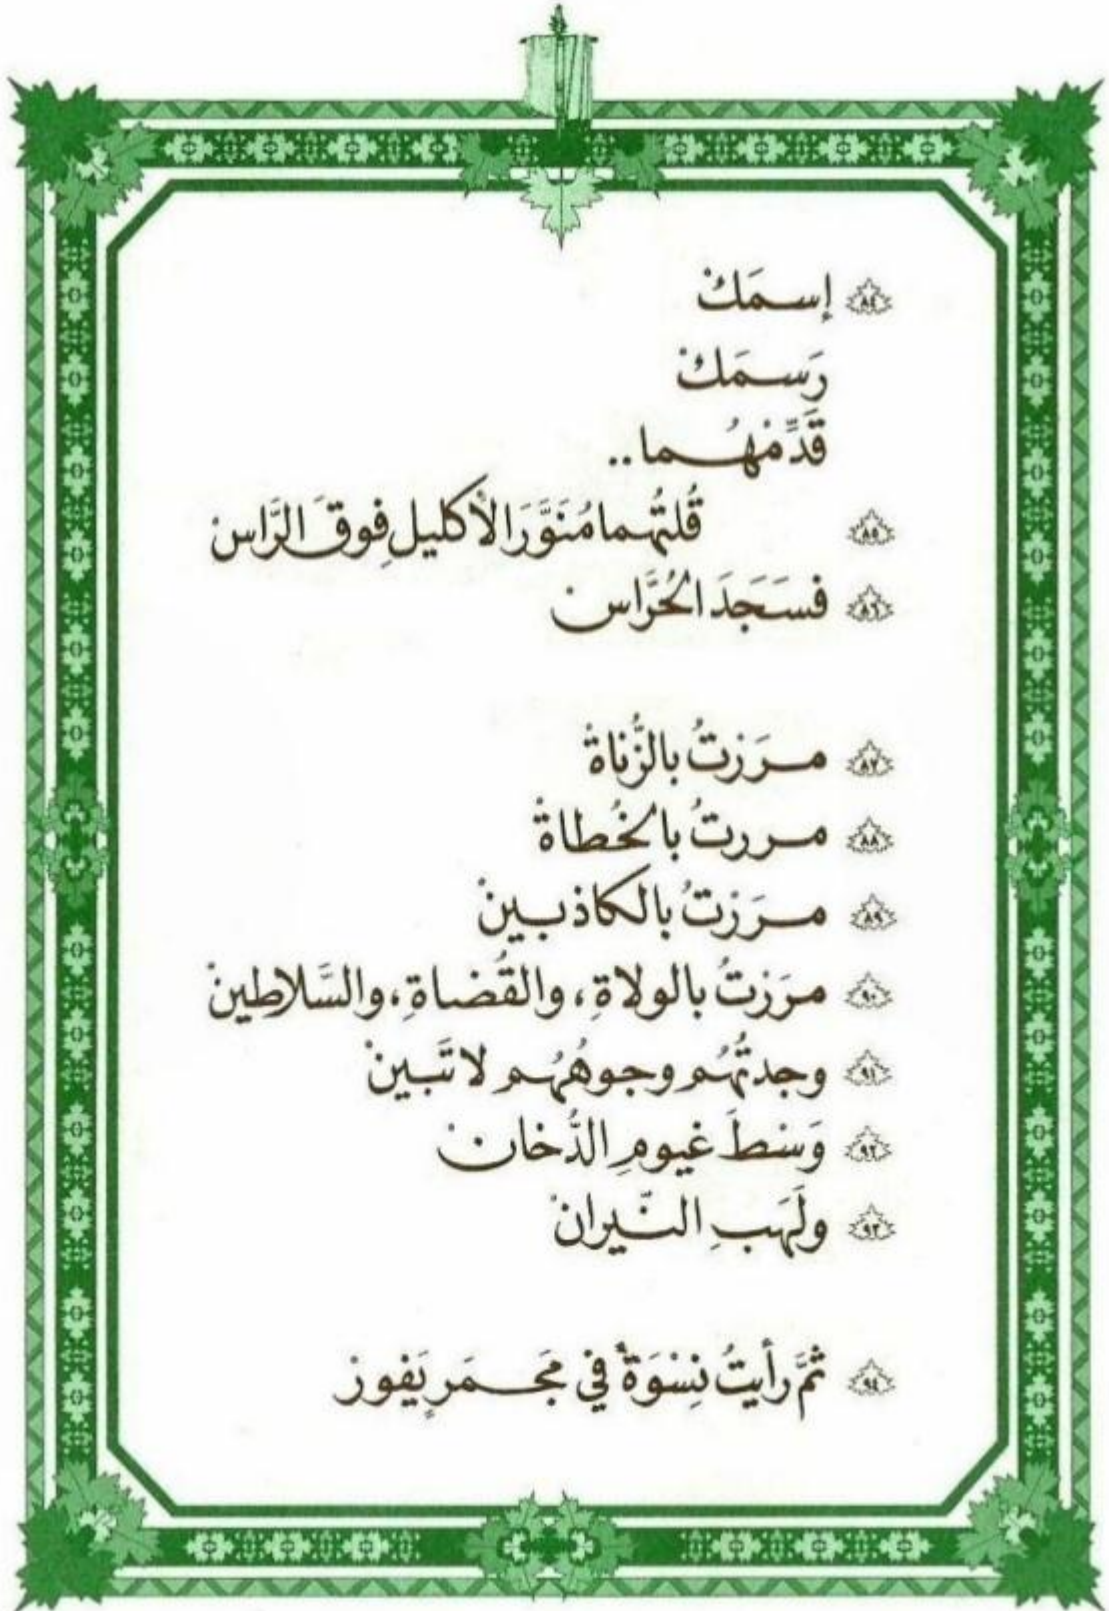 ٨٤ إسمَكْ
رَسمَكْ
قَدِّمْهُما..
٨٥ قُلتُهما مُنَوَّرَ الأكليلِ فوقَ الرَّاسْ
٨٦ فسَجَدَ الحُرَّاسْ
٨٧ مرَرْتُ بالزُّناةْ
٨٨ مررتُ بالخُطاةْ
٨٩ مرَرْتُ بالكاذبينْ
٩٠ مرَرْتُ بالولاةِ، والقُضاةِ، والسَّلاطينْ
٩١ وجدتُهُم وجوهُهُم لا تَبينْ
٩٢ وَسْطَ غيومِ الدُّخانْ
٩٣ ولَهَبِ النّيرانْ
٩٤ ثمَّ رأيتُ نِسْوَةً في مَجمَرٍ يَفورْ